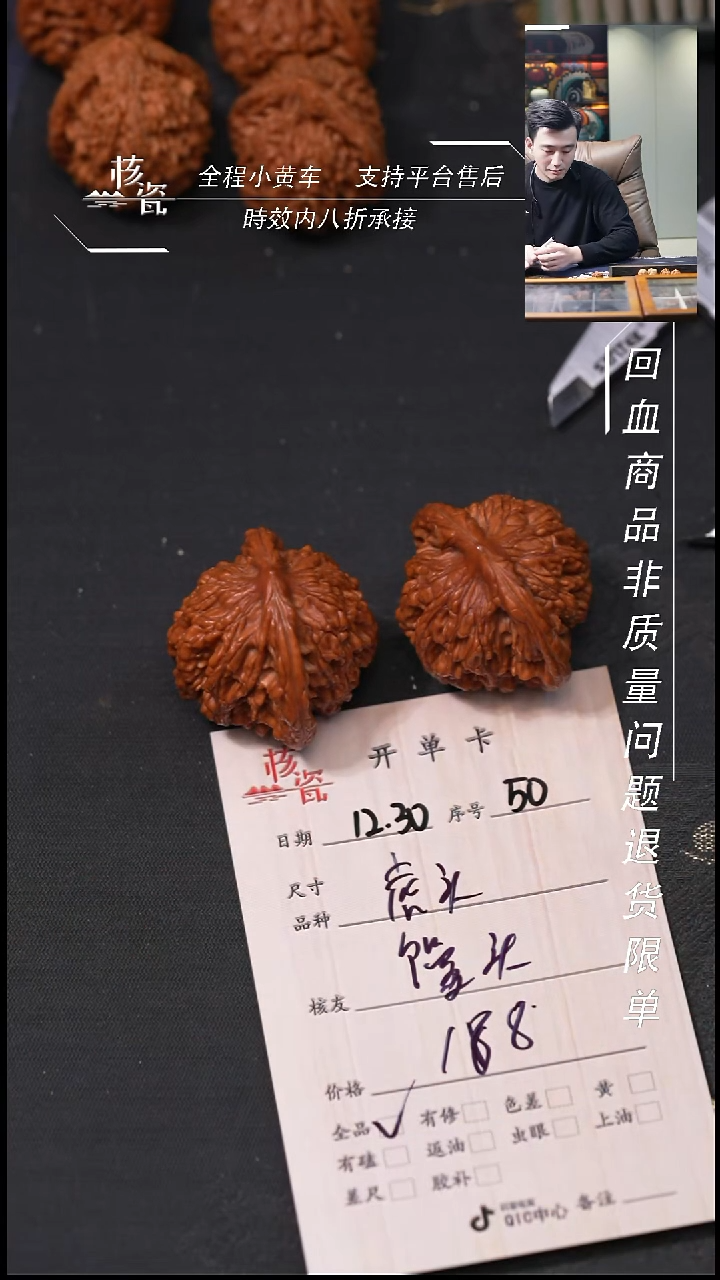 核瓷
全程小黄车 支持平台售后
時效内八折承接
回血商品非质量问题退货限单
核瓷 开单卡
日期 12.30 序号 50
尺寸
品种 虎头
核友 馒头
价格 188
全品 ✓ 有修 色差 黄
有磕 返油 虫眼 上油
差尺 胶补
QIC中心 备注